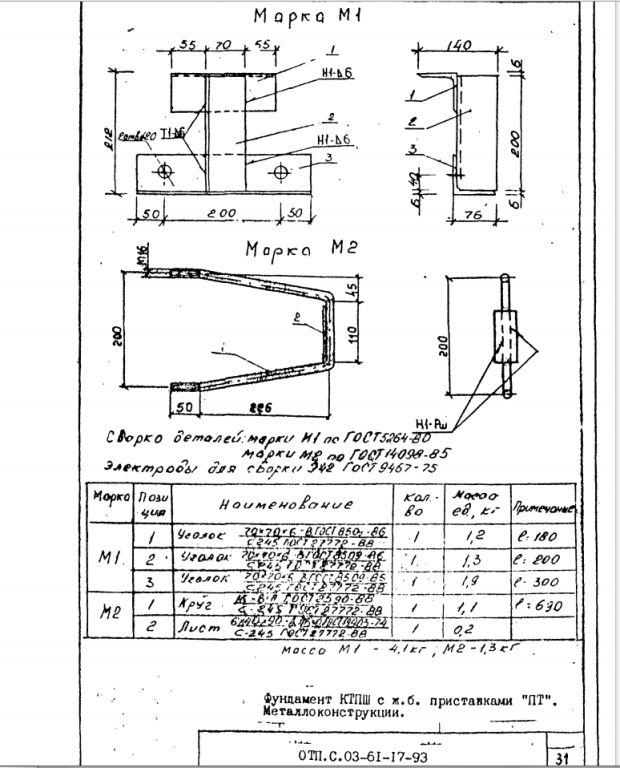 Марка М1
55 70 55
1
Н1-Δ6
2
Н1-Δ6
Т1-Δ6
3
212
50 200 50
140
6
1
2
3
200
40
6
6
76
Марка М2
200
45
110
2
1
50 226
200
Н1-Рш
Сварка деталей: марки М1 по ГОСТ 5264-80
марки М2 по ГОСТ 14098-85
Электроды для сварки Э42 ГОСТ 9467-75
Марка Позиция Наименование Кол-во Масса ед, кг Примечание
М1 1 Уголок 70×70×6-В ГОСТ 8509-86 С 245 ГОСТ 27772-88 1 1,2 ℓ=180
2 Уголок 70×70×6 В ГОСТ 8509-86 С-245 ГОСТ 27772-88 1 1,3 ℓ=200
3 Уголок 70×70×6 В ГОСТ 8509-86 С-245 ГОСТ 27772-88 1 1,9 ℓ=300
М2 1 Круг ГОСТ 2590-88 С-245 ГОСТ 27772-88 1 1,1 ℓ=690
2 Лист С-245 ГОСТ 27772-88 1 0,2
Масса М1 - 4,1кг; М2-1,3кг
Фундамент КТПШ с ж.б. приставками "ПТ".
Металлоконструкции.
ОТП.С.03-61-17-93
31